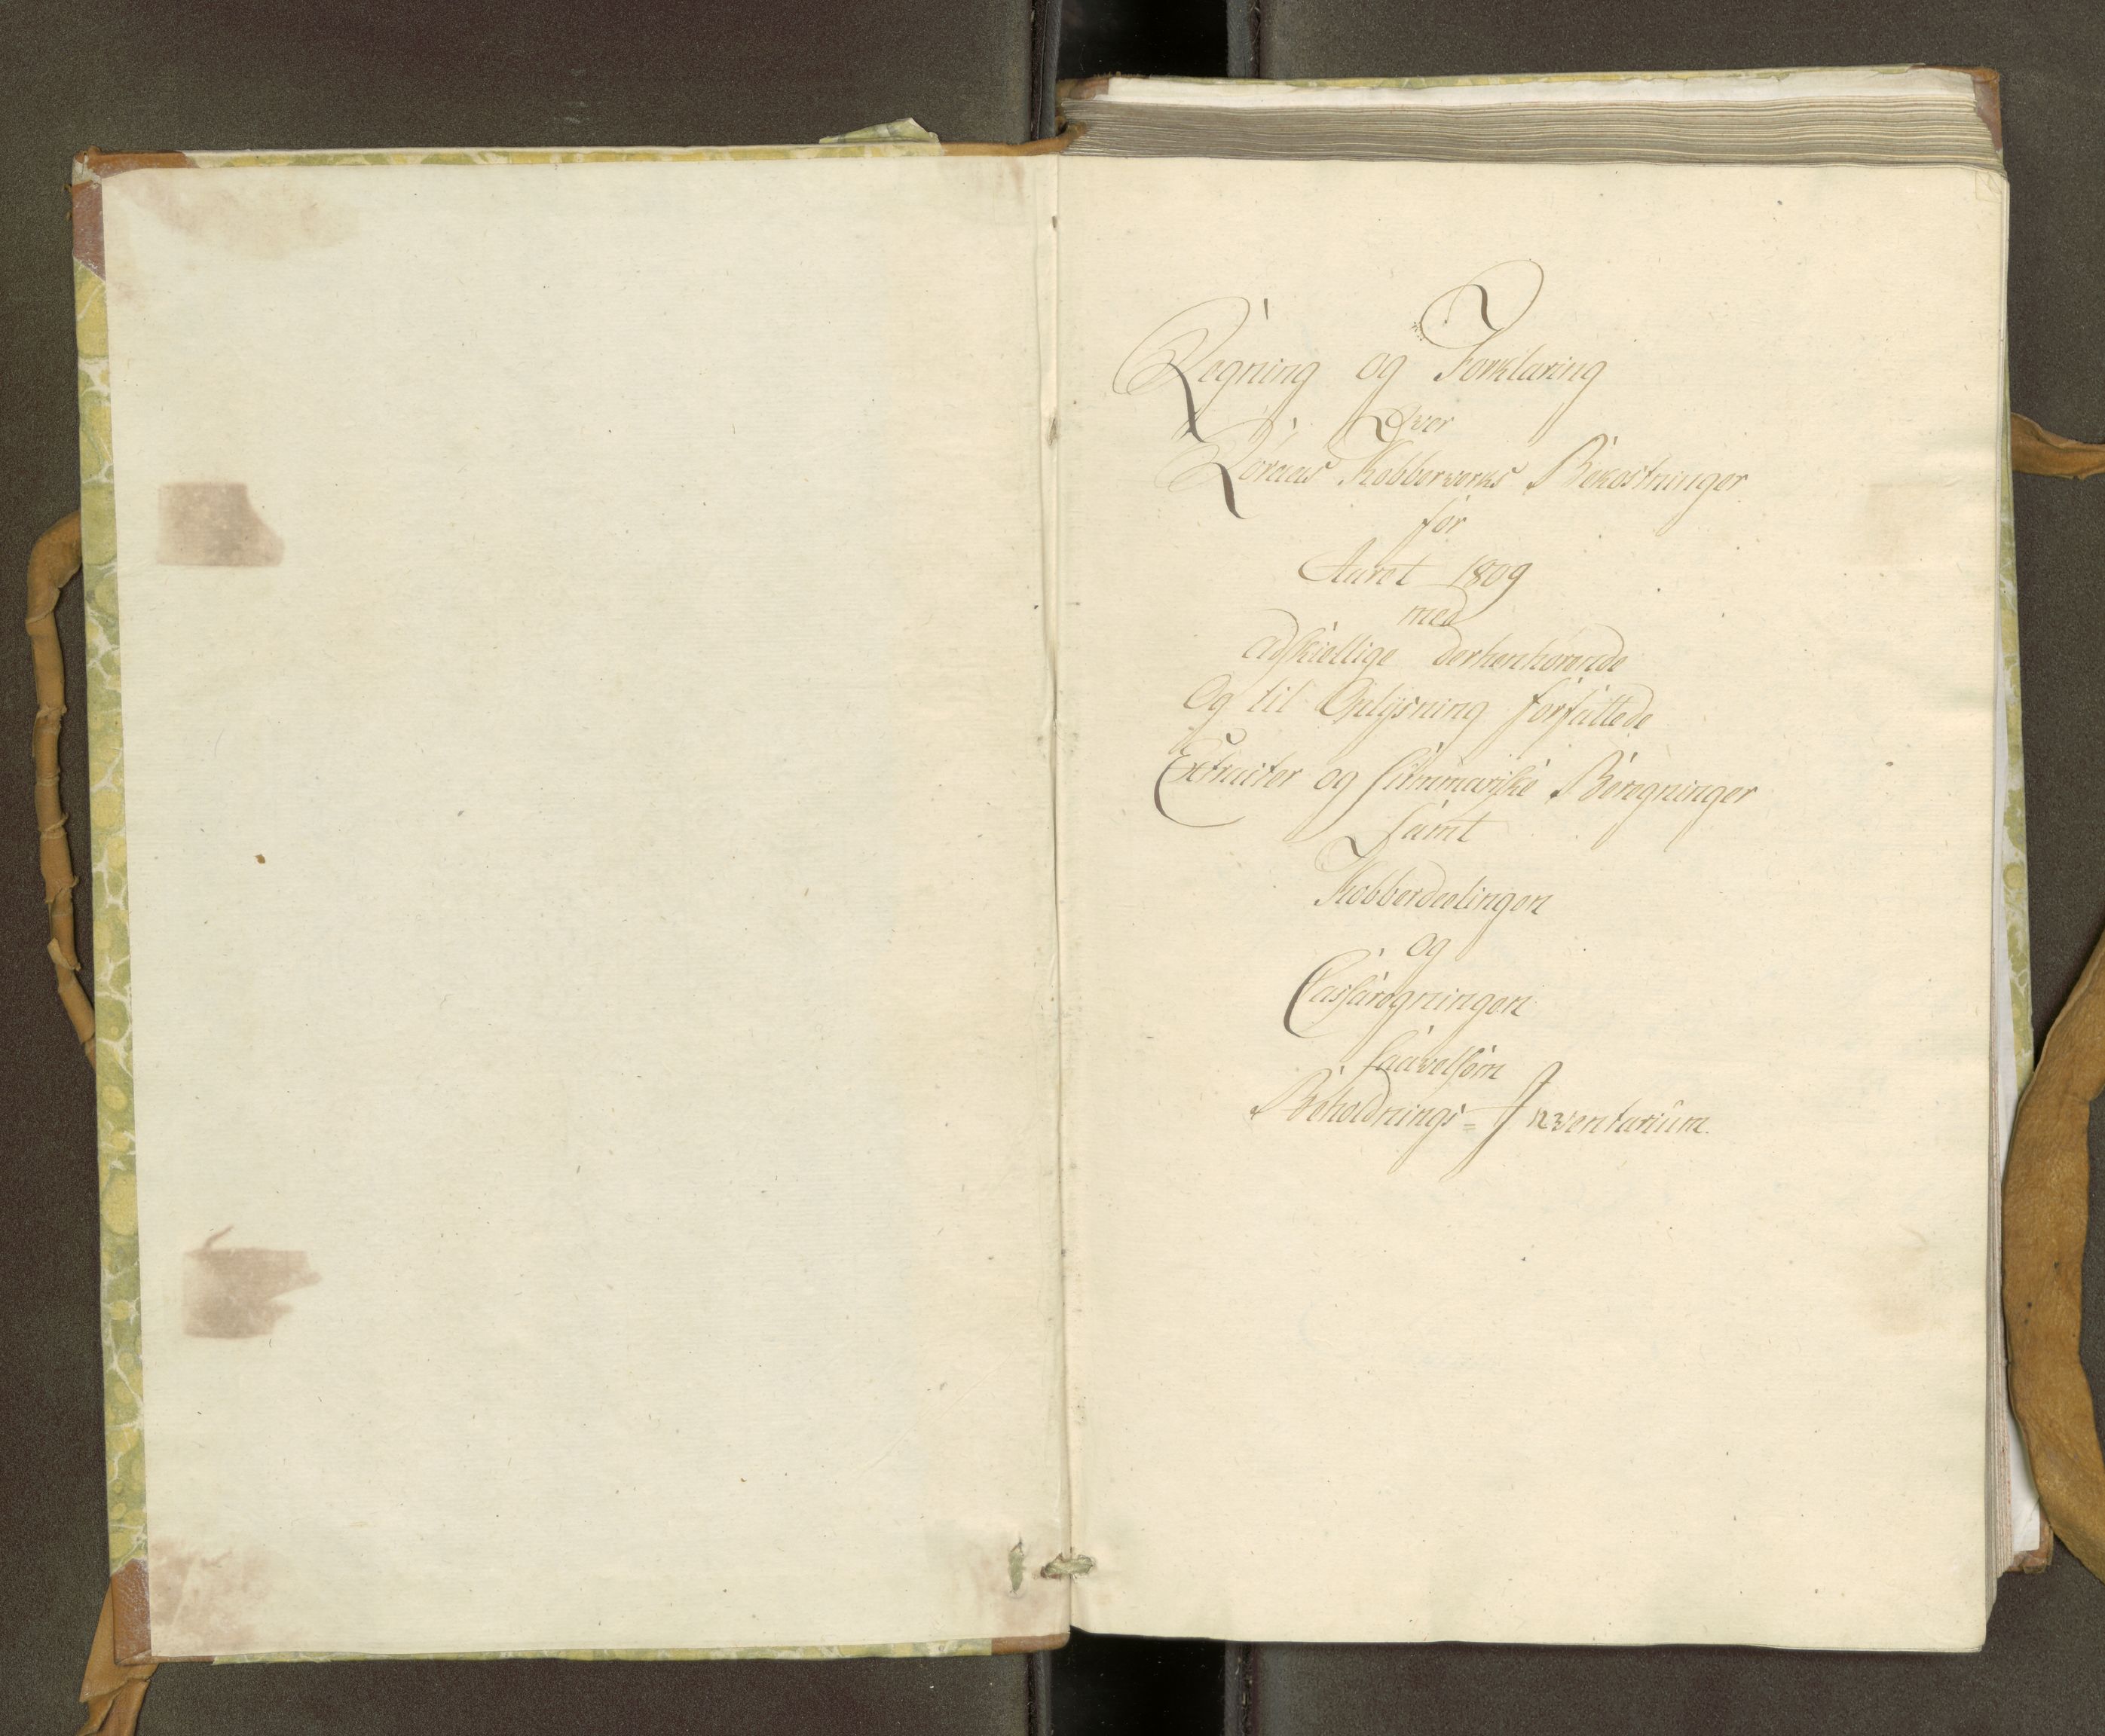 Regning og Forklaring
Over
Röraas Kobberverks Bekostninger
for
Aaret 1809
med
adskiellige derhenhörende
Og til Oplÿsning forfattede
Extracter og summariske Beregninger
samt
Kobberdeelingen
og
Cassaregningen
saavelsom
Beholdnings=Inventarium.